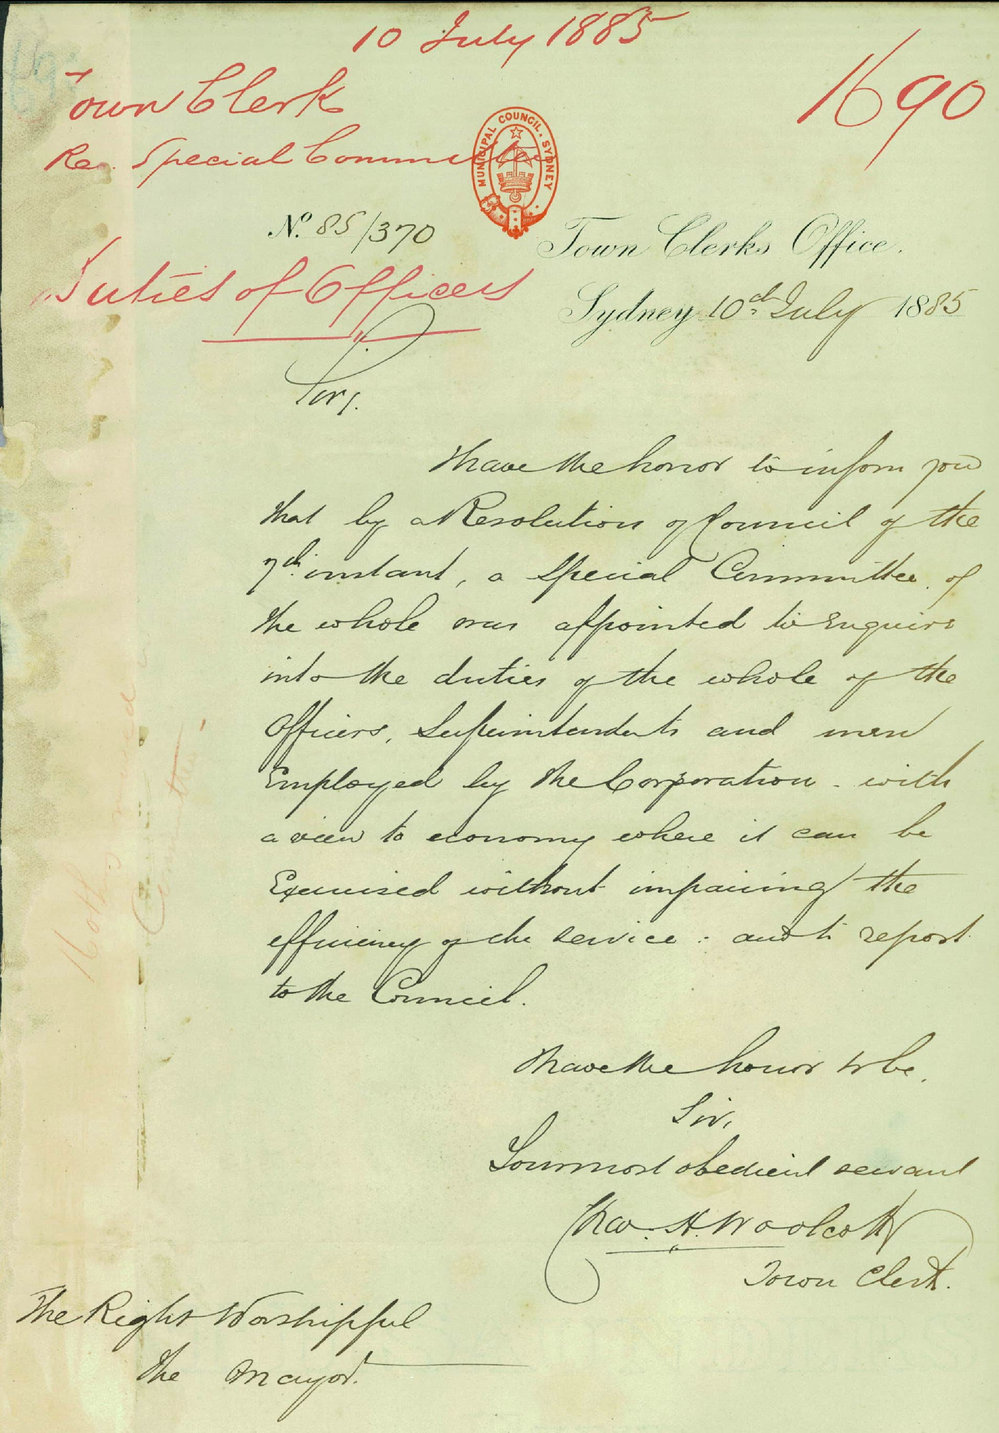 10 July 1885
Town Clerk
1690
Re. Special Committee
MUNICIPAL COUNCIL. SYDNEY
No. 85/370
Town Clerks Office.
Duties of Officers
Sydney 10th July 1885
Sir,
I have the honor to inform you
that by a Resolution of Council of the
7th instant, a Special Committee of
the whole was appointed to Enquire
into the duties of the whole of the
Officers, Superintendents and men
Employed by the Corporation - with
a view to economy where it can be
Exercised without impairing the
efficiency of the service: and to report
to the Council.
I have the honor to be,
Sir,
Your most obedient servant
Chas. H. Woolcott
Town Clerk.
The Right Worshipful
the Mayor.